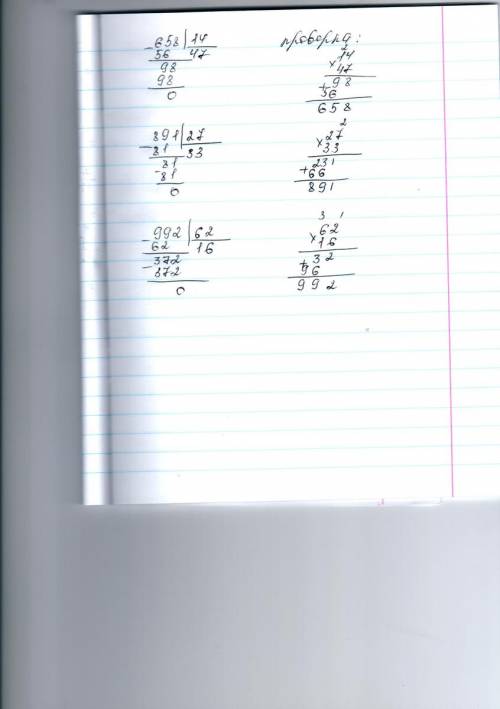 -658 | 14
56 47
98
98
0
проверка:
2
14
×47
98
+56
658
-891 | 27
81 33
81
-81
0
2
×27
33
231
+66
891
-992 | 62
62 16
-372
372
0
3 1
62
×16
+32
96
992